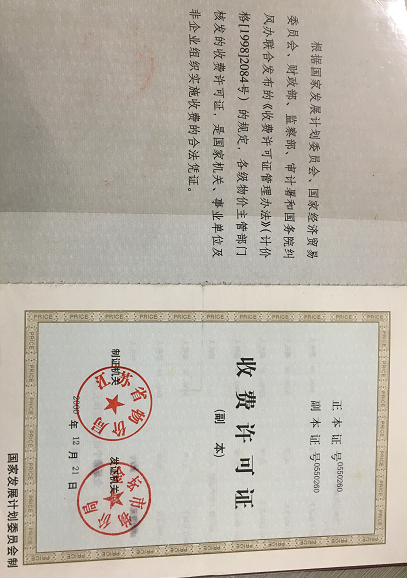 根据国家发展计划委员会、国家经济贸易
委员会、财政部、监察部、审计署和国务院纠
风办联合发布的《收费许可证管理办法》(计价
格[1998]2084号)的规定，各级物价主管部门
核发的收费许可证，是国家机关、事业单位及
非企业组织实施收费的合法凭证。
正本证号0550260
副本证号0550260
收费许可证
(副 本)
制证机关
江苏省物价局
发证机关
2000 年 12 月 21 日
国家发展计划委员会制